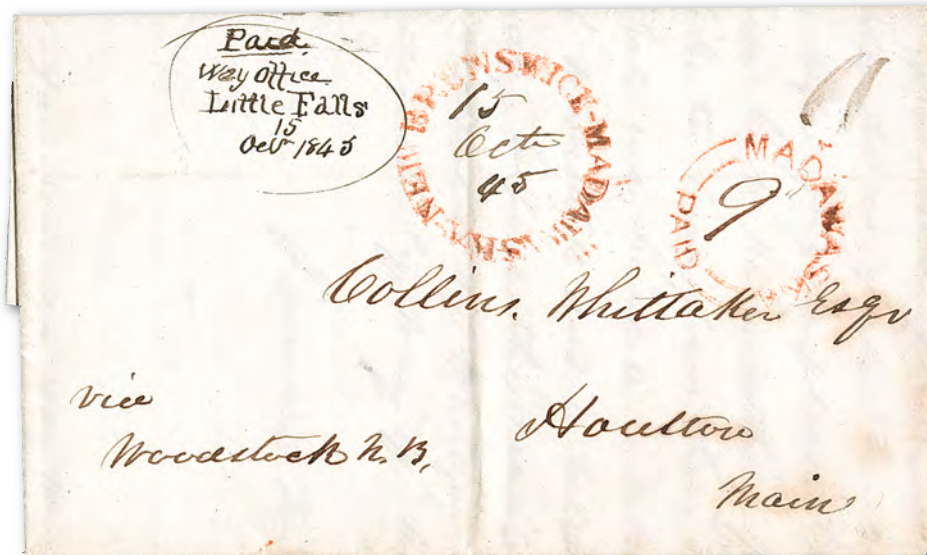 Paid.
Way Office
Little Falls
15
Octr 1845
NEW BRUNSWICK-MADAWASKA
15
Octr
45
MADAWASKA
PAID
9
Collins. Whittaker Esqr
vice
Woodstock N. B,
Houlton
Main